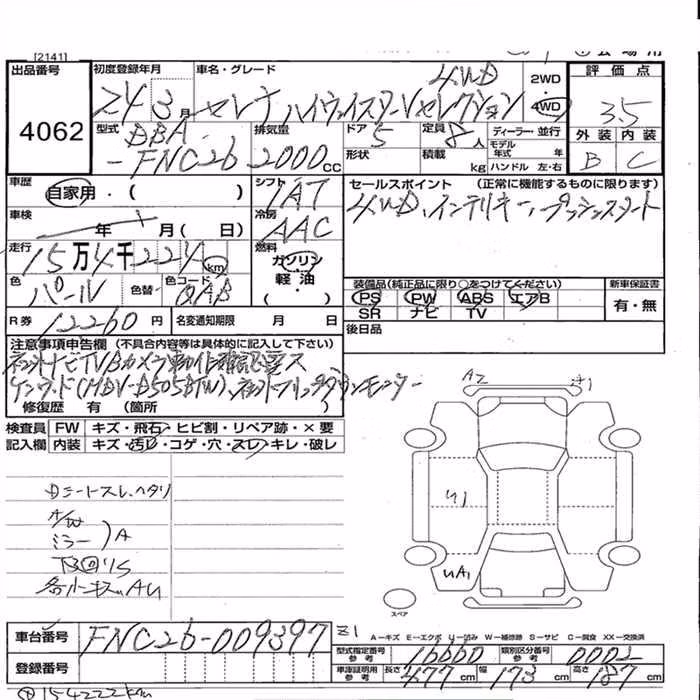 [2141]
出品番号 初度登録年月 車名・グレード 2WD 評価点
4062 24 3月 セレナ ハイウェイスターVセレクション 4WD 4WD 3.5
型式 DBA-FNC26 排気量 2000cc ドア 5 定員 8人 ディーラー・並行 外装 内装
形状 積載 kg モデル年式 年 B C
ハンドル 左・右
車歴 自家用・( ) シフト IAT セールスポイント (正常に機能するものに限ります)
車検 年 月( 日) 冷房 AAC 4WD、インテリキー、プッシュスタート
走行 15万4千224km 燃料 ガソリン・軽油・
色 パール 色替 色コード QAB 装備品(純正品に限り○をつけてください) 新車保証書
PS PW ABS エアB 有・無
SR ナビ TV
R券 12260円 名変通知期限 月 日 後日品
注意事項申告欄 (不具合内容等は具体的に記入して下さい)
ケンウッド(MDV-D505BTW)、
修復歴 有 (箇所 )
検査員 FW キズ・飛石・ヒビ割・リペア跡・×要
記入欄 内装 キズ・汚レ・コゲ・穴・スレ・キレ・破レ
A2 A1
Dシートスレ、ヘタリ
A/W
ミラー )A
U1
UA1
スペア
車台番号 FNC26-009397
A-キズ E-エクボ U-凹み W-補修跡 S-サビ C-腐食 XX-交換済
登録番号
型式指定番号 参考 16660 類別区分番号 参考 0002
車庫証明用 参考 長さ 477cm 幅 173cm 高さ 187cm
154222km